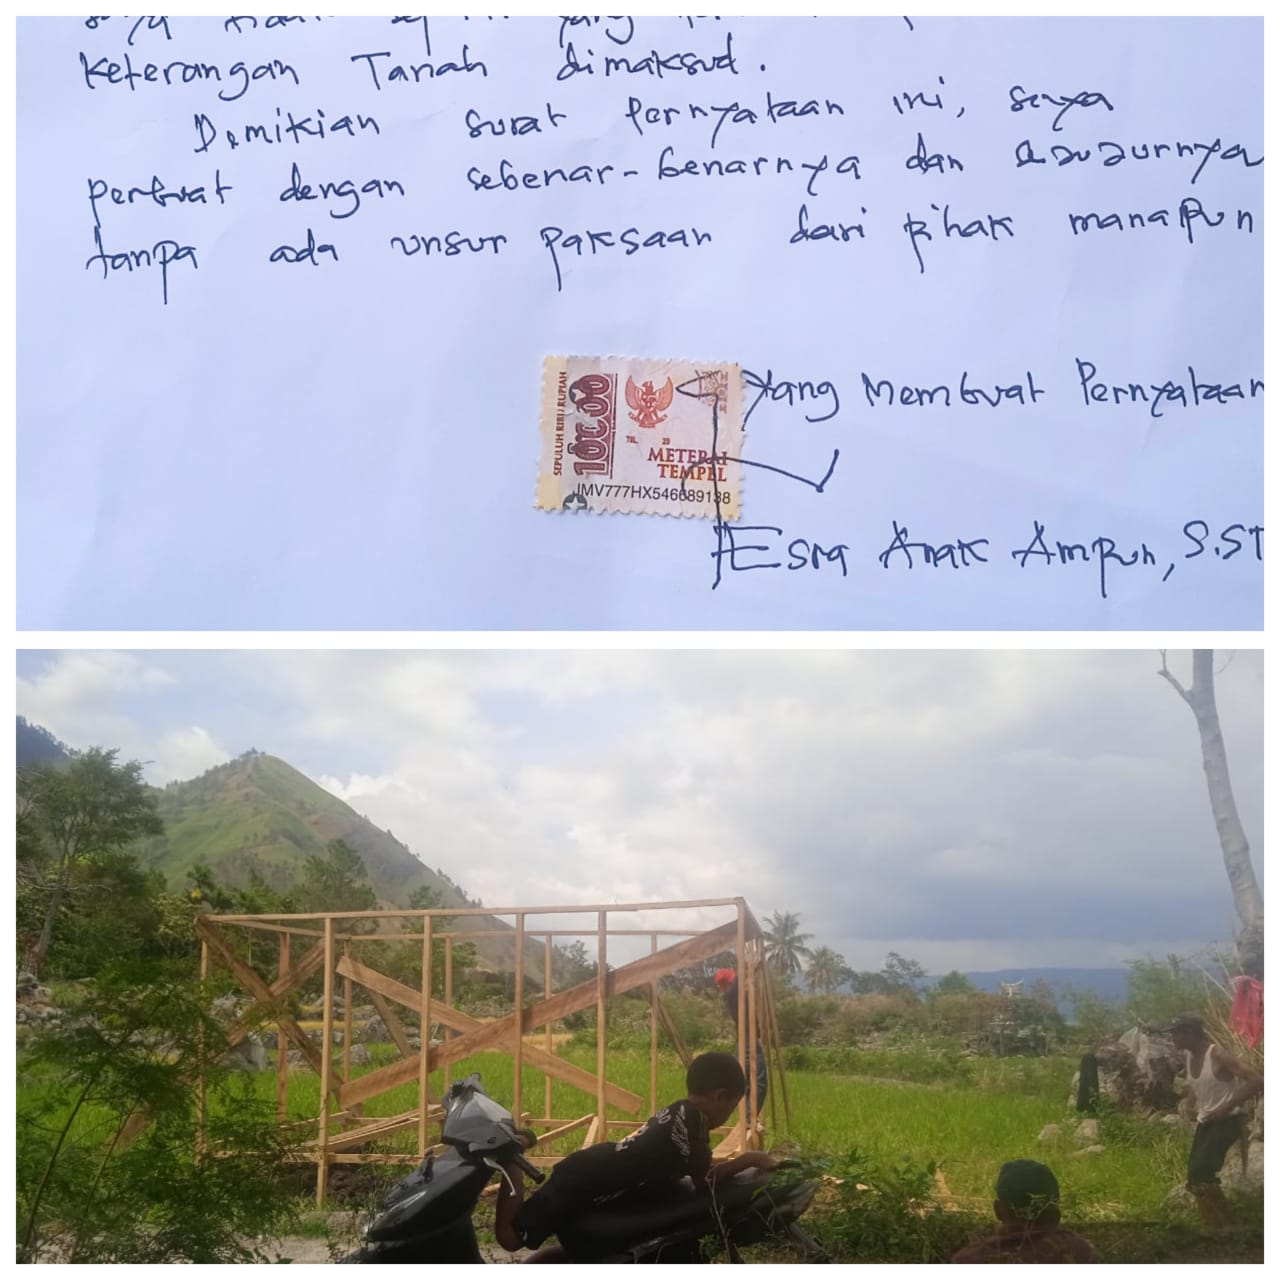 Keterangan Tanah dimaksud.
Demikian surat Pernyataan ini, saya
perbuat dengan sebenar-benarnya dan
tanpa ada unsur paksaan dari pihak manapun
Yang Membuat Pernyataan
SEPULUH RIBU RUPIAH
10000
TGL. 20
METERAI
TEMPEL
JMV777HX546689138
Esra Anak Ampun, S.ST